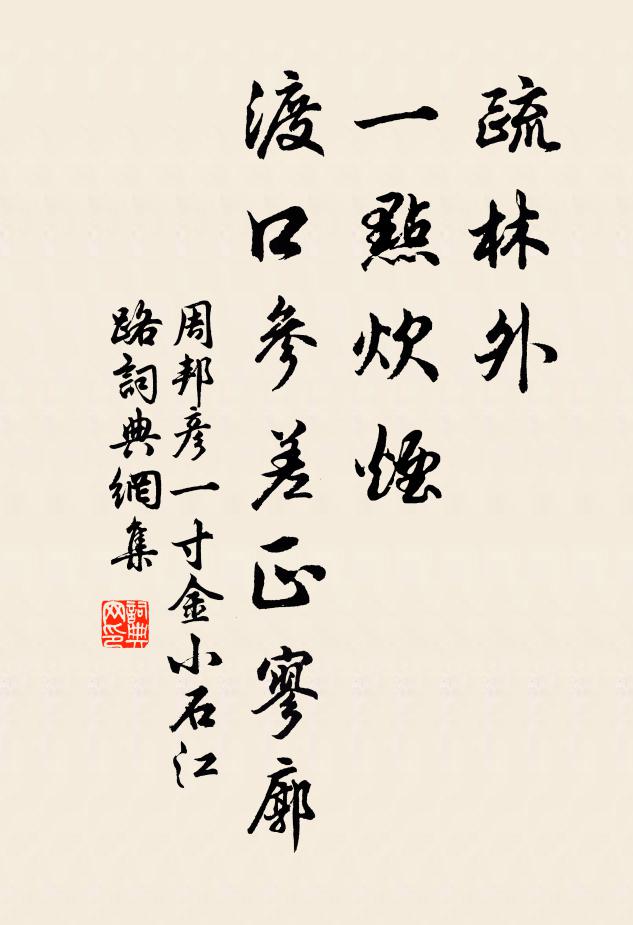 疏林外
一點炊煙
渡口參差正寥廓
周邦彦一寸金小石江
路詞典網集
詞典网印